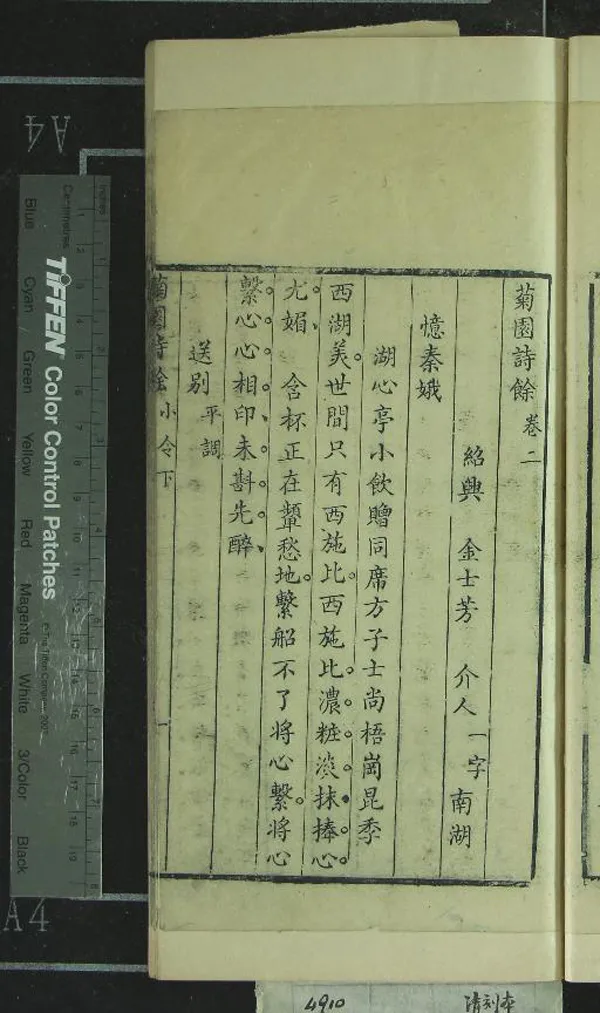 菊園詩餘 卷二
紹興 金士芳 介人 一字 南湖
憶秦娥
湖心亭小飲贈同席方子士尚梧崗昆季
西湖美世間只有西施比西施比濃粧淡抹捧心
尤媚 含杯正在顰愁地繫船不了將心繫將心
繫心心相印未斟先醉
送別 平調
菊園詩餘 小令下 一
A4
TIFFEN Color Control Patches
©The Tiffen Company, 2007
Centimetres
Inches
1 2 3 4 5 6 7 8 9 10 11 12 13 14 15 16 17 18 19
Blue Cyan Green Yellow Red Magenta White 3/Color Black
A4
4910
清刻本